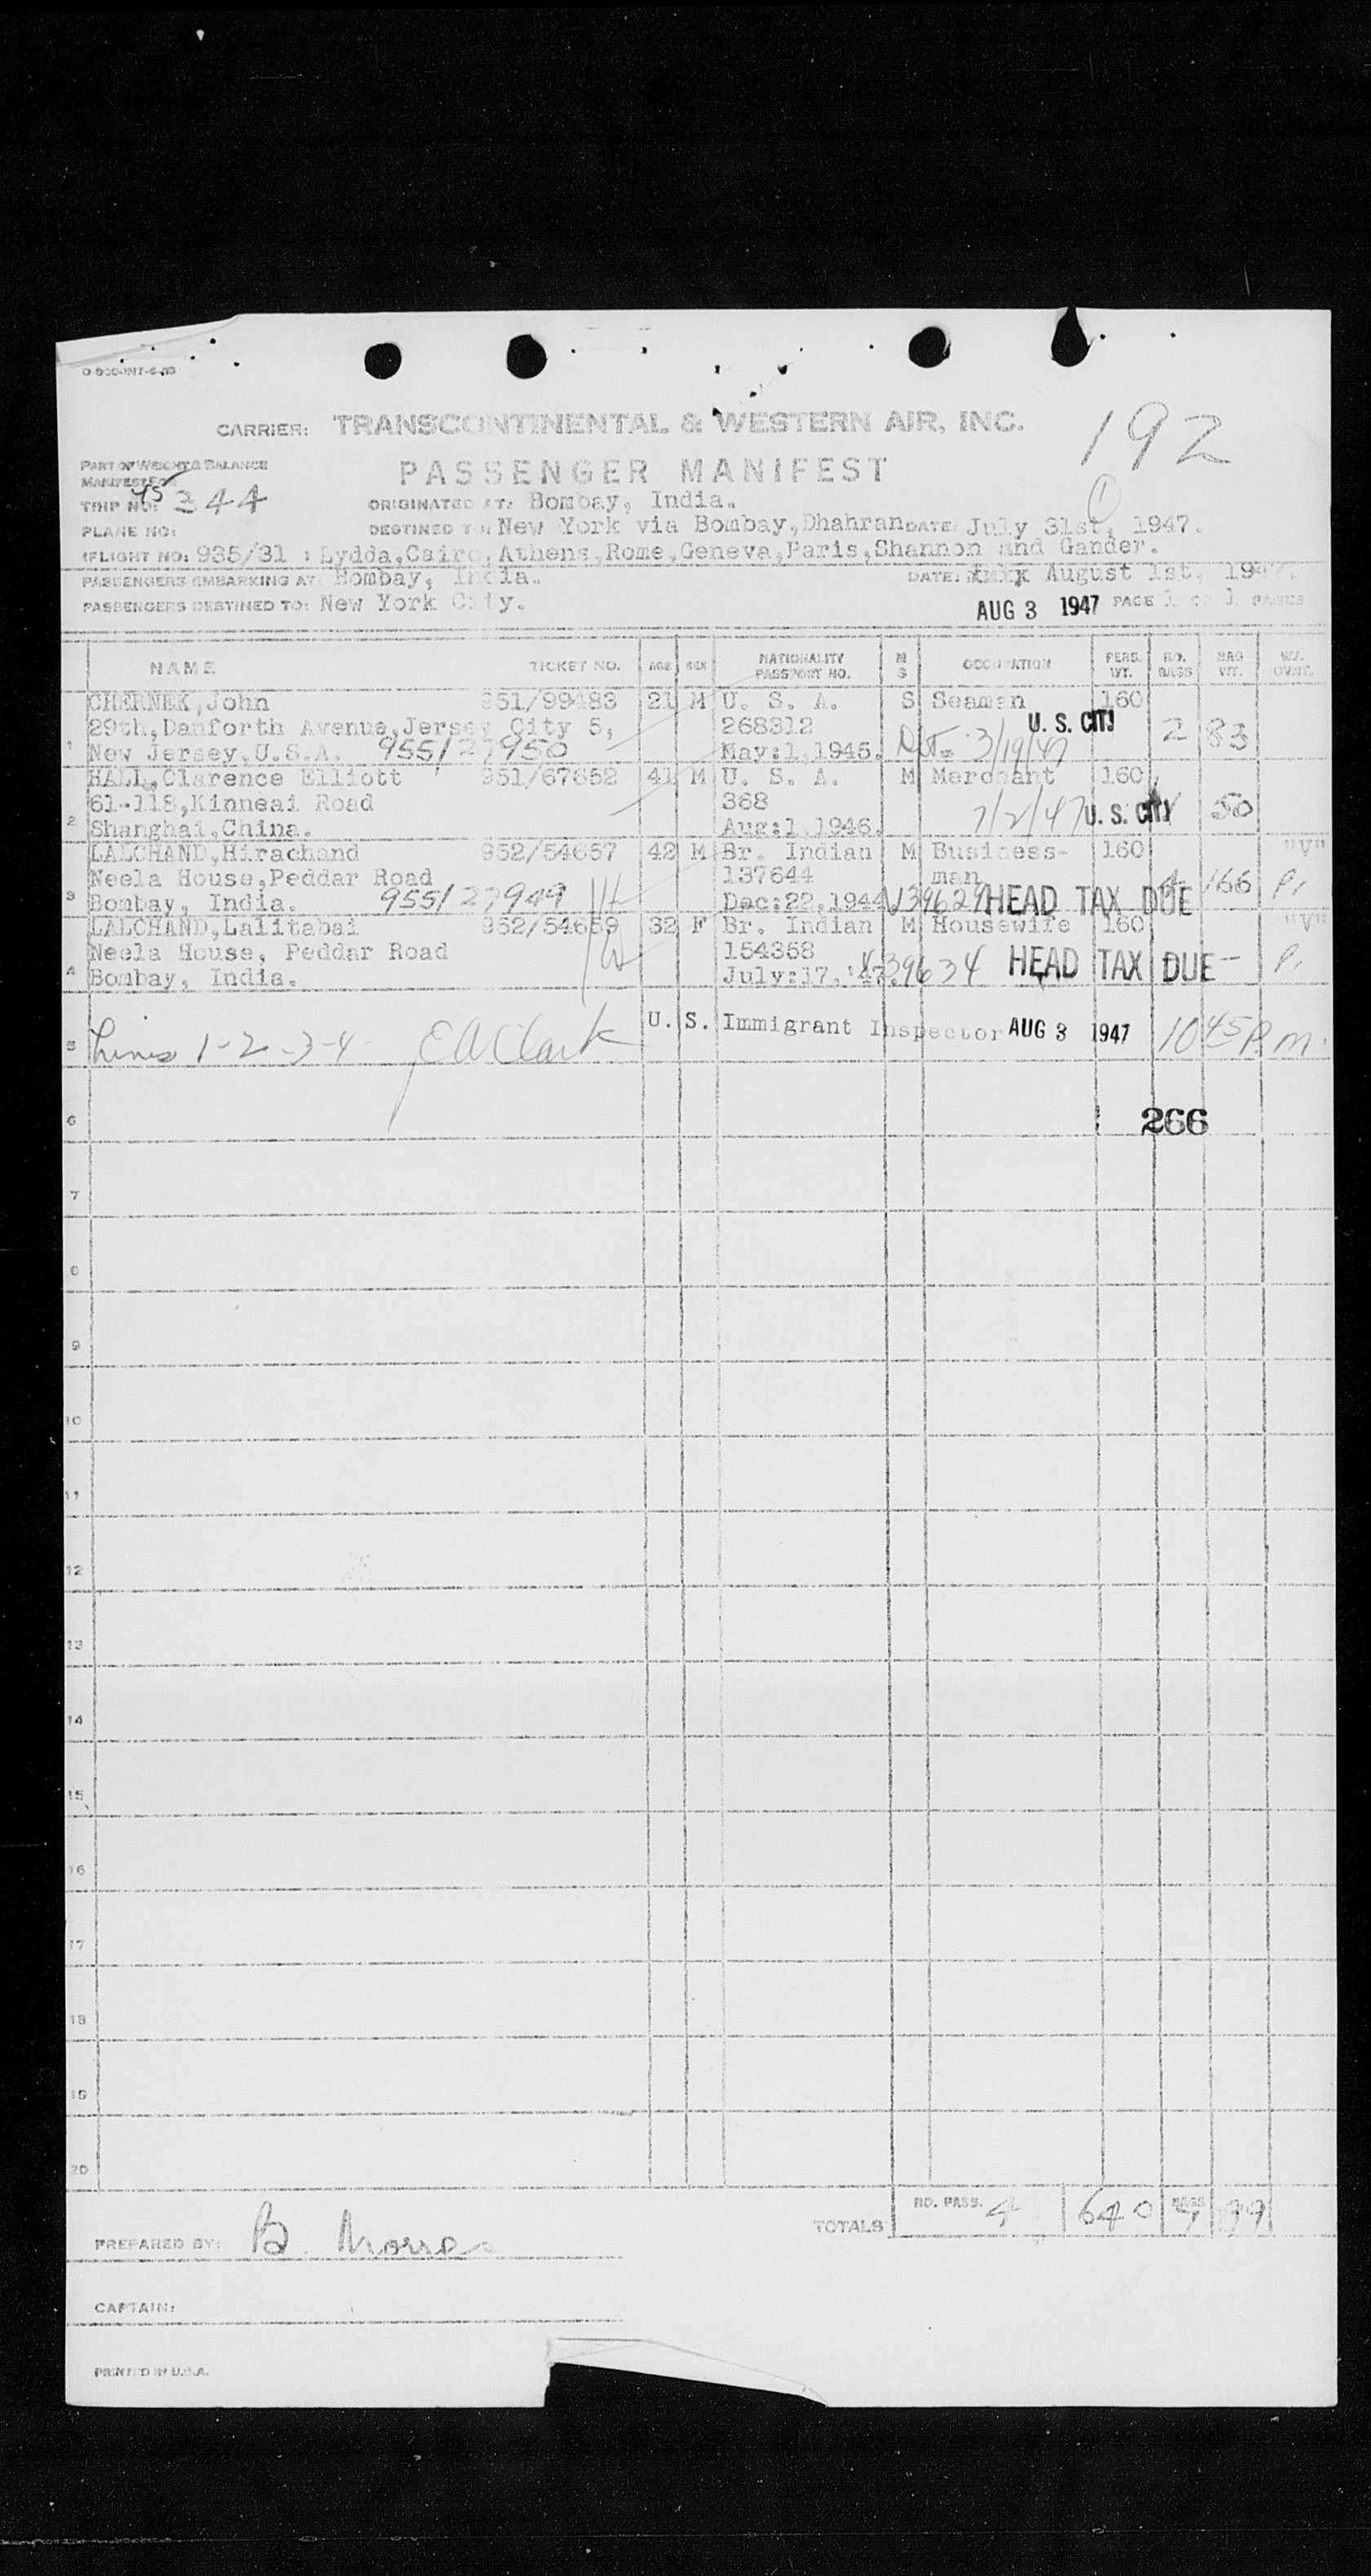 O-900-INT-6-
CARRIER: TRANSCONTINENTAL & WESTERN AIR, INC.
192
PART OF WEIGHT & BALANCE
PASSENGER MANIFEST
MANIFEST FOR
TRIP NO: 45 344
ORIGINATED AT: Bombay, India.
PLANE NO:
DESTINED TO: New York via Bombay,Dhahran DATE: July 31st, 1947.
FLIGHT NO: 935/31 : Lydda,Cairo, Athens,Rome,Geneva,Paris,Shannon and Gander.
PASSENGERS EMBARKING AT: Bombay, India. DATE: August 1st, 1947.
PASSENGERS DESTINED TO: New York City. AUG 3 1947 PAGE 1 OF 1 PAGES
NAME TICKET NO. AGE SEX NATIONALITY PASSPORT NO. M S OCCUPATION PERS. WT. NO. BAGS BAG WT.
CHERNEK,John 951/99483 21 M U. S. A. S Seaman 160
29th,Danforth Avenue,Jersey City 5, 268312 U. S. CIT 2 83
1 New Jersey.U.S.A. 955/27950 May:1,1945. 3/19/47
HALL,Clarence Elliott 951/67652 41 M U. S. A. M Merchant 160
61-118,Kinneai Road 368 7/2/47 U. S. CITY 50
2 Shanghai,China. Aug:1,1946.
LALCHAND,Hirachand 952/54657 42 M Br. Indian M Business- 160 "V"
Neela House,Peddar Road 137644 man 4 166 P.
3 Bombay, India. 955/27949 Dec:22,1944 V39629 HEAD TAX DUE
LALCHAND,Lalitabai 952/54659 32 F Br. Indian M Housewife 160 "V"
Neela House, Peddar Road 154358 V39634 HEAD TAX DUE - P.
4 Bombay, India. July:17,'47.
5 Lines 1-2-3-4 E A Clark U. S. Immigrant Inspector AUG 3 1947 10 45 P.m.
6 266
7
8
9
10
11
12
13
14
15
16
17
18
19
20
TOTALS NO. PASS. 4 640 BAGS
PREPARED BY: B.
CAPTAIN:
PRINTED IN U.S.A.